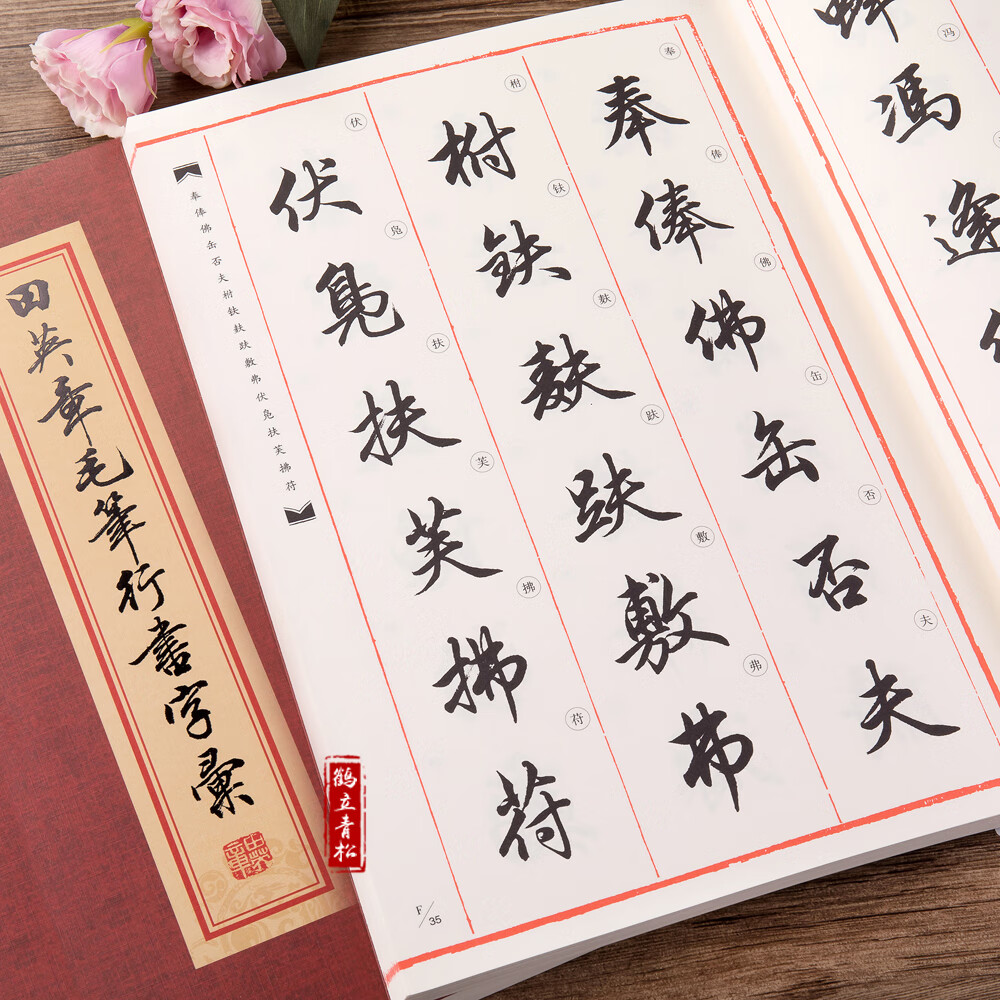 田英章毛筆行書字彙
奉俸佛缶否夫柎𫓧麸趺敷弗伏凫扶芙拂苻
冯
馮
逢
奉俸佛缶否夫
奉俸佛缶否夫
柎𫓧麸趺敷弗
柎鈇麩趺敷弗
伏凫扶芙拂苻
伏鳧扶芙拂苻
F/35
鹤立青松